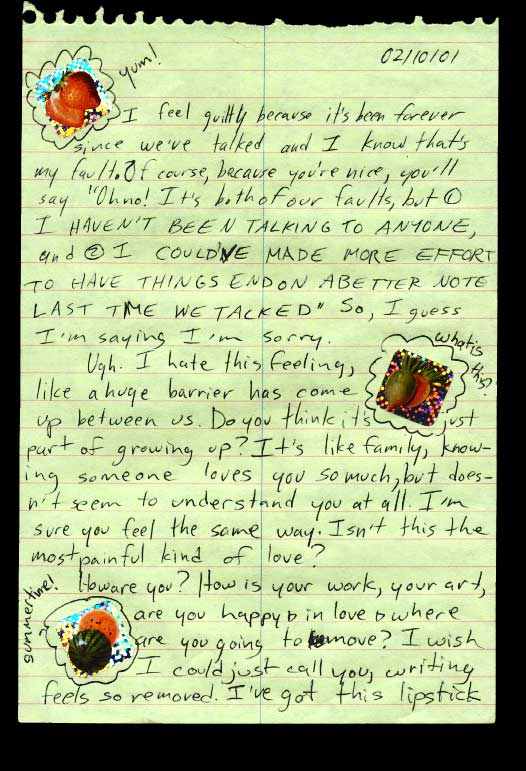 02/10/01
yum!
I feel guilty because it's been forever
since we've talked and I know that's
my fault. Of course, because you're nice, you'll
say "Oh no! It's both of our faults, but ①
I HAVEN'T BEEN TALKING TO ANYONE,
and ② I COULD'VE MADE MORE EFFORT
TO HAVE THINGS END ON A BETTER NOTE
LAST TIME WE TALKED" So, I guess
I'm saying I'm sorry.
what is
this?
Ugh. I hate this feeling,
like a huge barrier has come
up between us. Do you think it's just
part of growing up? It's like family, know-
ing someone loves you so much, but does-
n't seem to understand you at all. I'm
sure you feel the same way. Isn't this the
most painful kind of love?
summertime!
How are you? How is your work, your art,
are you happy in love where
are you going to move? I wish
I could just call you, writing
feels so removed. I've got this lipstick